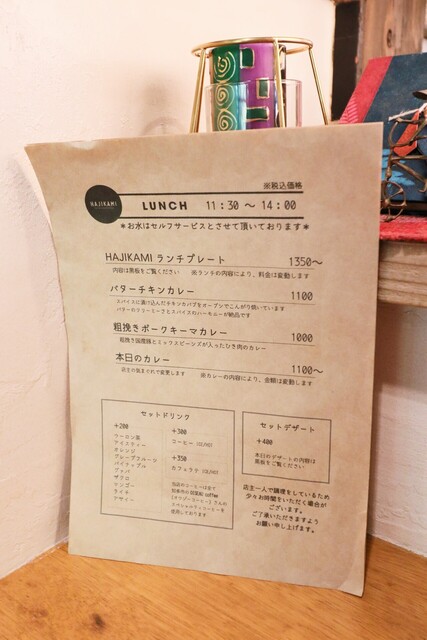 ※税込価格
HAJIKAMI
LUNCH 11:30 〜 14:00
＊お水はセルフサービスとさせて頂いております＊
HAJIKAMI ランチプレート 1350〜
内容は黒板をご覧ください ※ランチの内容により、料金は変動します
バターチキンカレー 1100
スパイスに漬け込んだチキンカバブをオーブンでこんがり焼いています
バターのクリーミーさとスパイスのハーモニーが絶品です
粗挽きポークキーマカレー 1000
粗挽き国産豚とミックスビーンズが入ったひき肉のカレー
本日のカレー 1100〜
店主の気まぐれで変更します ※カレーの内容により、金額は変動します
セットドリンク
+200
ウーロン茶
アイスティー
オレンジ
グレープフルーツ
パイナップル
グァバ
ザクロ
マンゴー
ライチ
アサイー
+300
コーヒー ICE/HOT
+350
カフェラテ ICE/HOT
当店のコーヒーは全て
スペシャルティコーヒーを
使用しております
セットデザート
+400
本日のデザートの内容は
黒板をご覧ください
店主一人で調理をしているため
少々お時間をいただく場合が
ございます。
ご了承いただきますよう
お願い申し上げます。